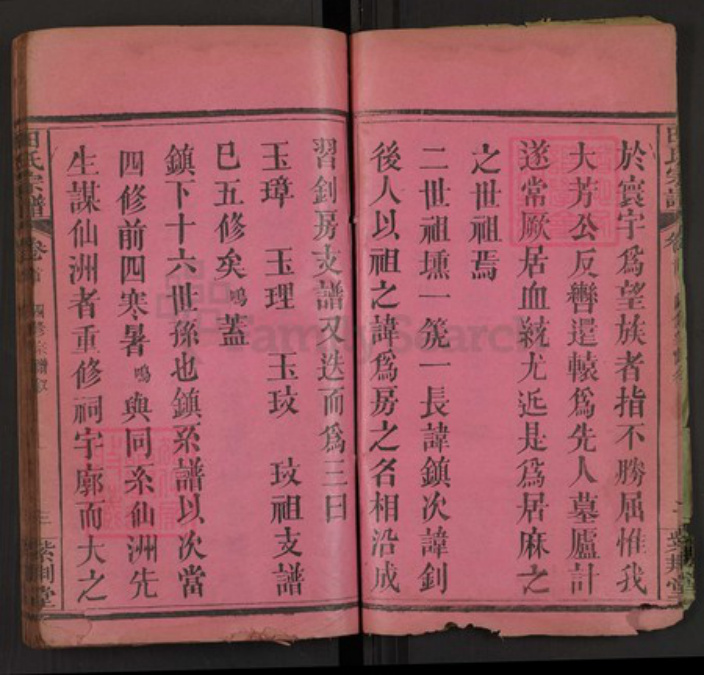 於寰宇爲望族者指不勝屈惟我
大芳公反轡還轅爲先人墓廬計
遂常厥居血統尤近是爲居麻之
之世祖焉
二世祖壎一篪一長諱鎮次諱釗
後人以祖之諱爲房之名相沿成
習釗房支譜又迭而爲三曰
玉璋 玉理 玉玟 玟祖支譜
巳五修矣鳴蓋
鎮下十六世孫也鎮系譜以次當
四修前四寒暑鳴與同系仙洲先
生謀仙洲者重修祠宇廓而大之
田氏宗譜 卷首 三 紫荆堂
FamilySearch